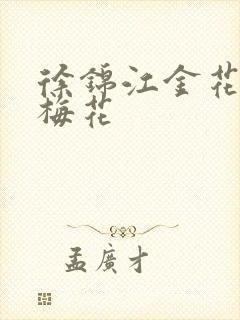 徐錦江金花
梅花
孟廣才